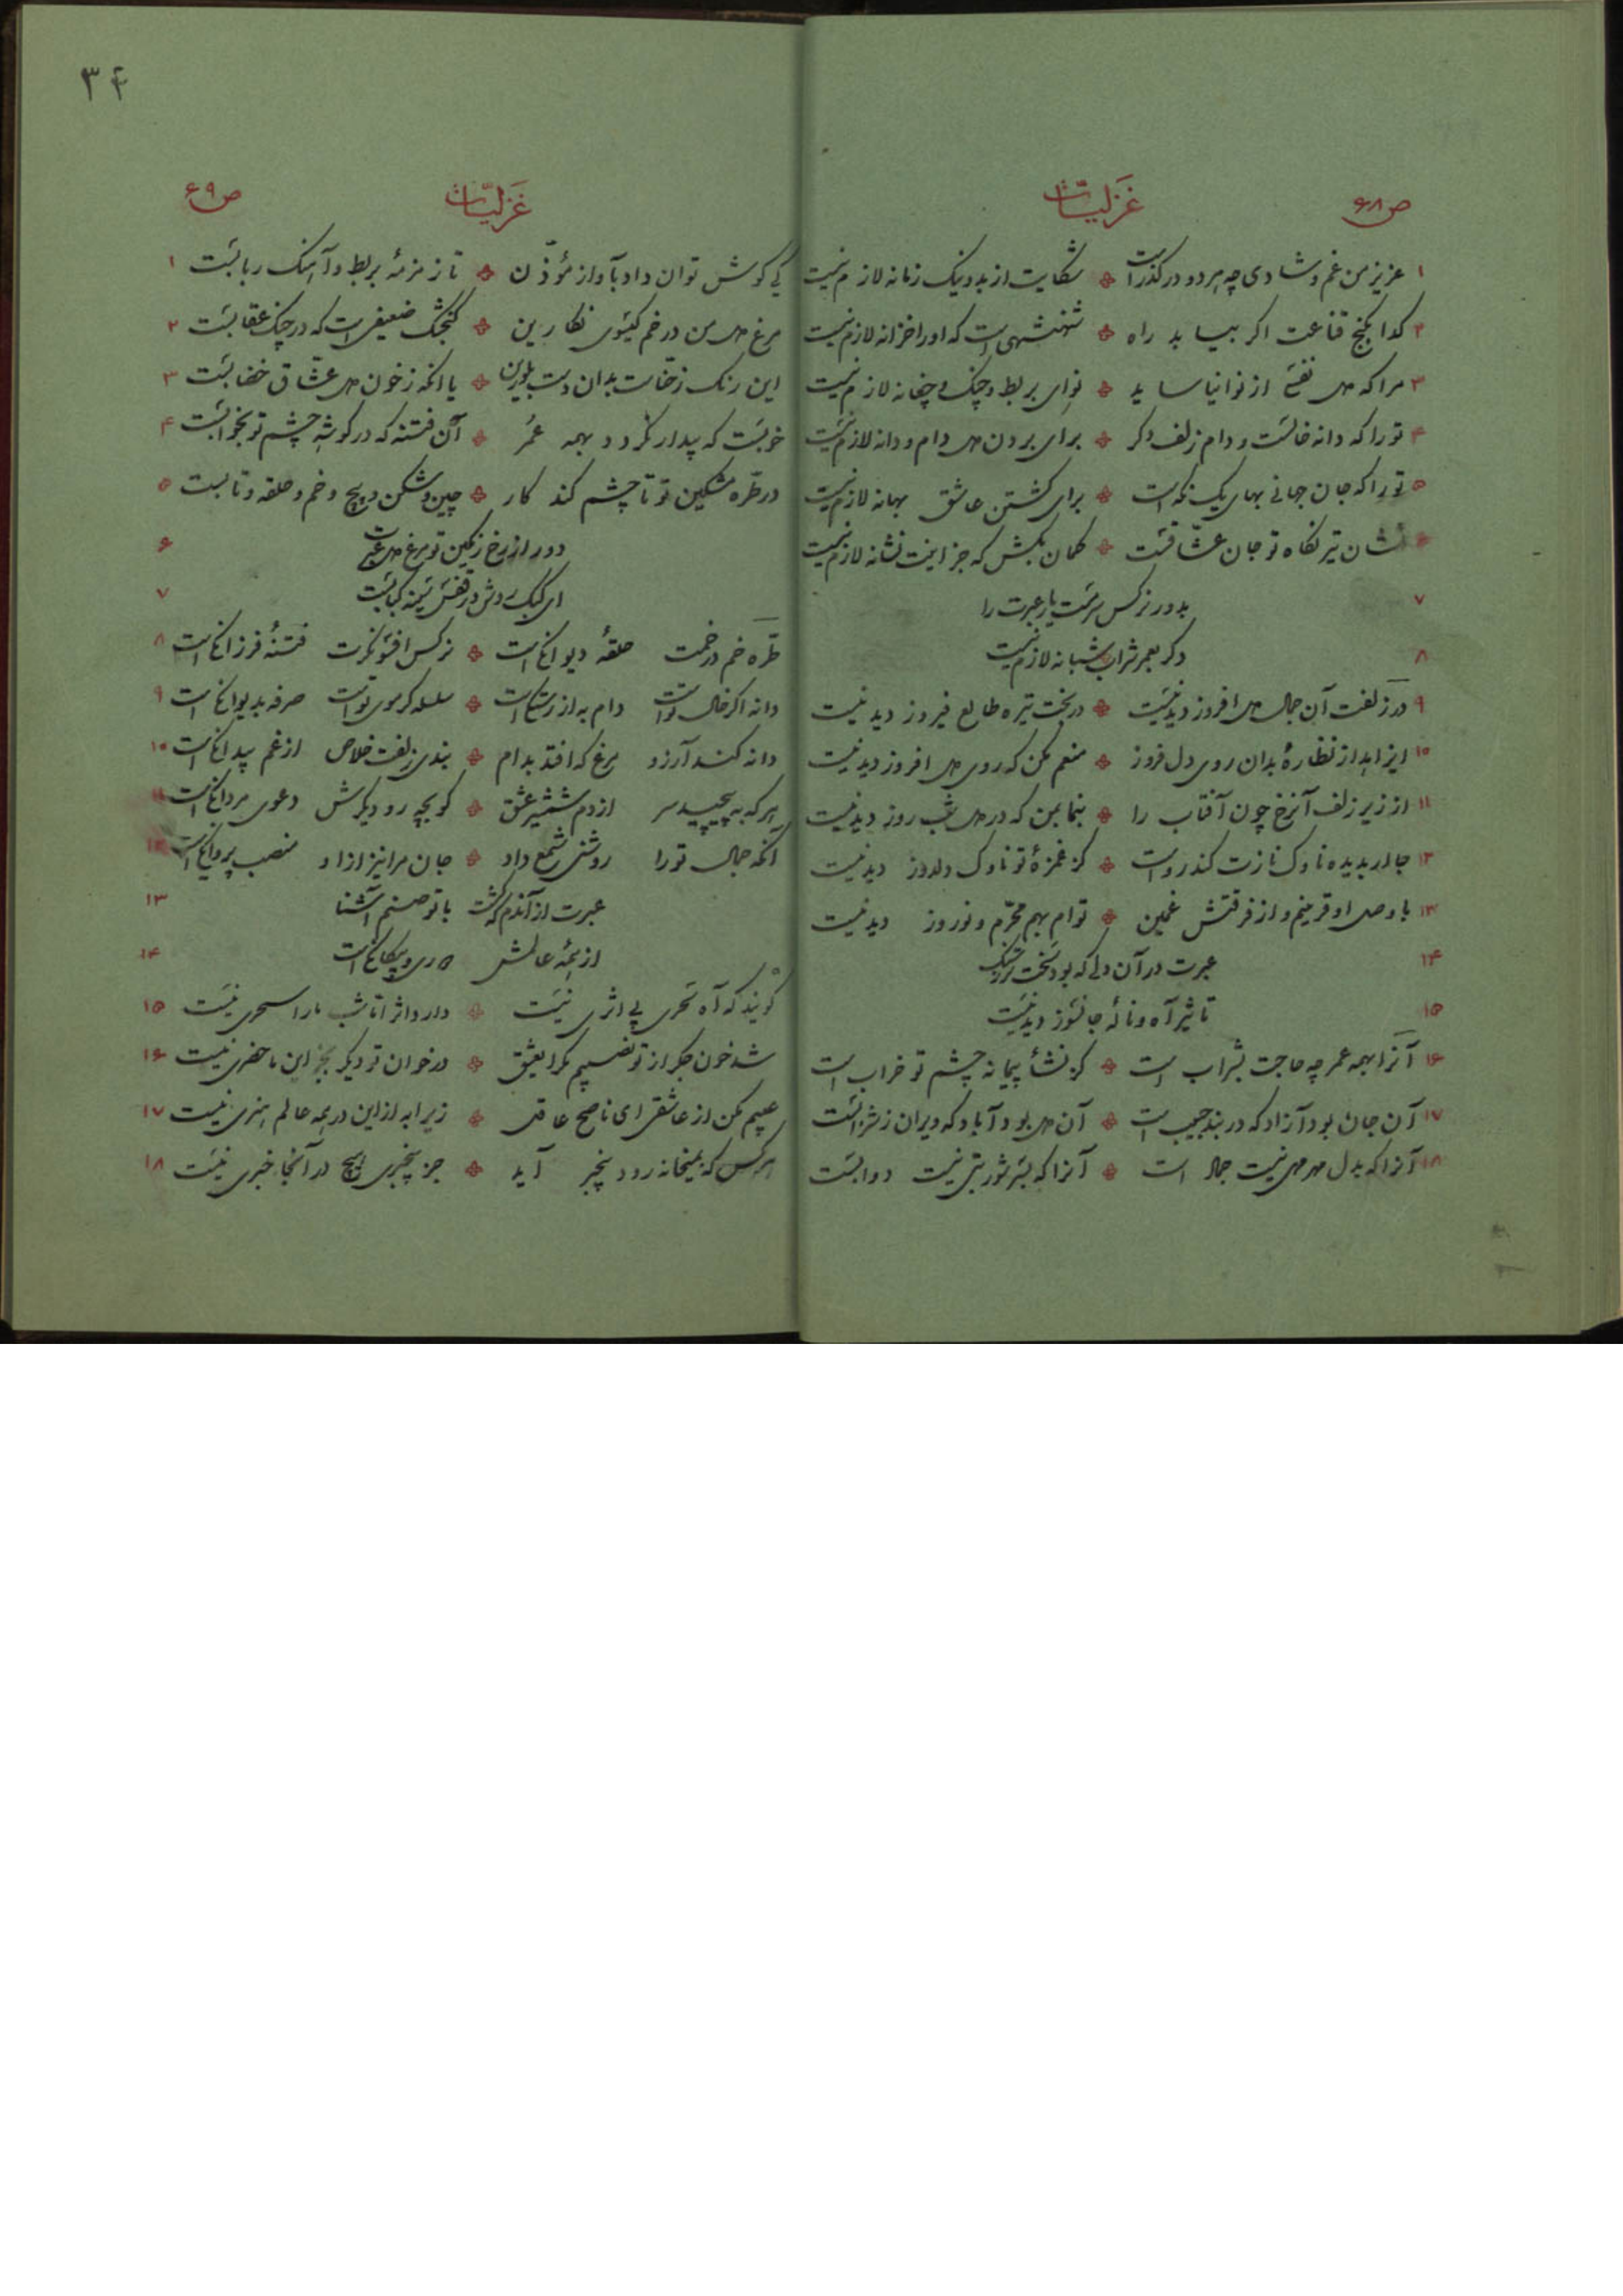 ۳۴
ص۶۸ غزلیّات
۱ عزیز من غم و شادی چه هر دو در گذر است ❖ شکایت از بد و نیک زمانه لازم نیست
۲ کدا بکنج قناعت اکر بیابد راه ❖ شهنشهی است که او را خزانه لازم نیست
۳ مرا که دل نفسی از نوا نیاساید ❖ نوای بربط و چنک و چغانه لازم نیست
۴ تو را که دانه خالست و دام زلف دکر ❖ برای بردن دل دام و دانه لازم نیست
۵ تو را که جان جهانی بهای یک نکه است ❖ برای کشتن عاشق بهانه لازم نیست
۶ نشان تیر نکاه تو جان عشّاقست ❖ کمان بکش که جز اینت نشانه لازم نیست
۷ بدور نرکس سرمست یار عبرت را
۸ دکر بعمر شراب شبانه لازم نیست
۹ در زلفت آن جمال دل افروز دیدنیست ❖ در بخت تیره طالع فیروز دیدنیست
۱۰ ایزاهد از نظارهٔ بدان روی دل فروز ❖ منعم مکن که روی دل افروز دیدنیست
۱۱ از زیر زلف آنرخ چون آفتاب را ❖ بنما بمن که در دل شب روز دیدنیست
۱۲ جا در بدیده ناوک نازت کند رواست ❖ کز غمزهٔ تو ناوک دلدوز دیدنیست
۱۳ با وصل او قرینم و از فرقتش غمین ❖ توام بهم محرّم و نوروز دیدنیست
۱۴ عبرت در آن دلی که بود سخت تر ز سنک
۱۵ تاثیر آه و نالهٔ جانسوز دیدنیست
۱۶ آنرا همه عمر چه حاجت بشراب است ❖ کز نشأ پیمانه چشم تو خراب است
۱۷ آن جان بود آزاد که در بند حبیب است ❖ آن دل بود آباد که ویران ز شرابست
۱۸ آنرا که بدل مهر مهی نیست جماد است ❖ آنرا که بسر شور بتی نیست دوابست
ص۶۹ غزلیّات
۱ کی کوش توان داد بآواز مؤذّن ❖ تا زمزمهٔ بربط و آهنک ربابست
۲ مرغ دل من در خم کیسوی نکارین ❖ کنجشک ضعیفی است که در چنک عقابست
۳ این رنک ز حناست بدان دست بلورین ❖ یا انکه ز خون دل عشّاق خضابست
۴ خوبست که بیدار نکردد بهمه عمر ❖ آن فتنه که در کوشهٔ چشم تو بخوابست
۵ در طرّه مشکین تو تا چشم کند کار ❖ چین و شکن و پیچ و خم و حلقه و تابست
۶ دور از رخ رنکین تو مرغ دل عبرت
۷ ای کبک روش در قفس سینه کبابست
۸ طرّه خم در خمت حلقهٔ دیوانکی است ❖ نرکس افسونکرت فتنهٔ فرزانکی است
۹ دانه اکر خال تو است دام به از رستکی است ❖ سلسله کر موی تو است صرفه بدیوانکی است
۱۰ دانه کند آرزو مرغ که افتد بدام ❖ بندی زلفت خلاص از غم بیدانکی است
۱۱ هر که به پیچید سر از دم شمشیر عشق ❖ کو بچه رو دیکرش دعوی مردانکی است
۱۲ آنکه جمال تو را روشنی شمع داد ❖ جان مرا نیز ازاو منصب پروانکی است
۱۳ عبرت از آندم که کشت با تو صنم آشنا
۱۴ از همهٔ عالمش روی به بیکانکی است
۱۵ کویند که آه سحری بی اثری نیست ❖ دارد اثر اما شب ما را سحری نیست
۱۶ شد خون جکر از تو نصیبم مکر ایعشق ❖ در خوان تو دیکر بجز این ماحضری نیست
۱۷ عیبم مکن از عاشقی ای ناصح عاقل ❖ زیرا به از این در همه عالم هنری نیست
۱۸ هر کس که بمیخانه رود بیخبر آید ❖ جز بیخبری هیچ در آنجا خبری نیست